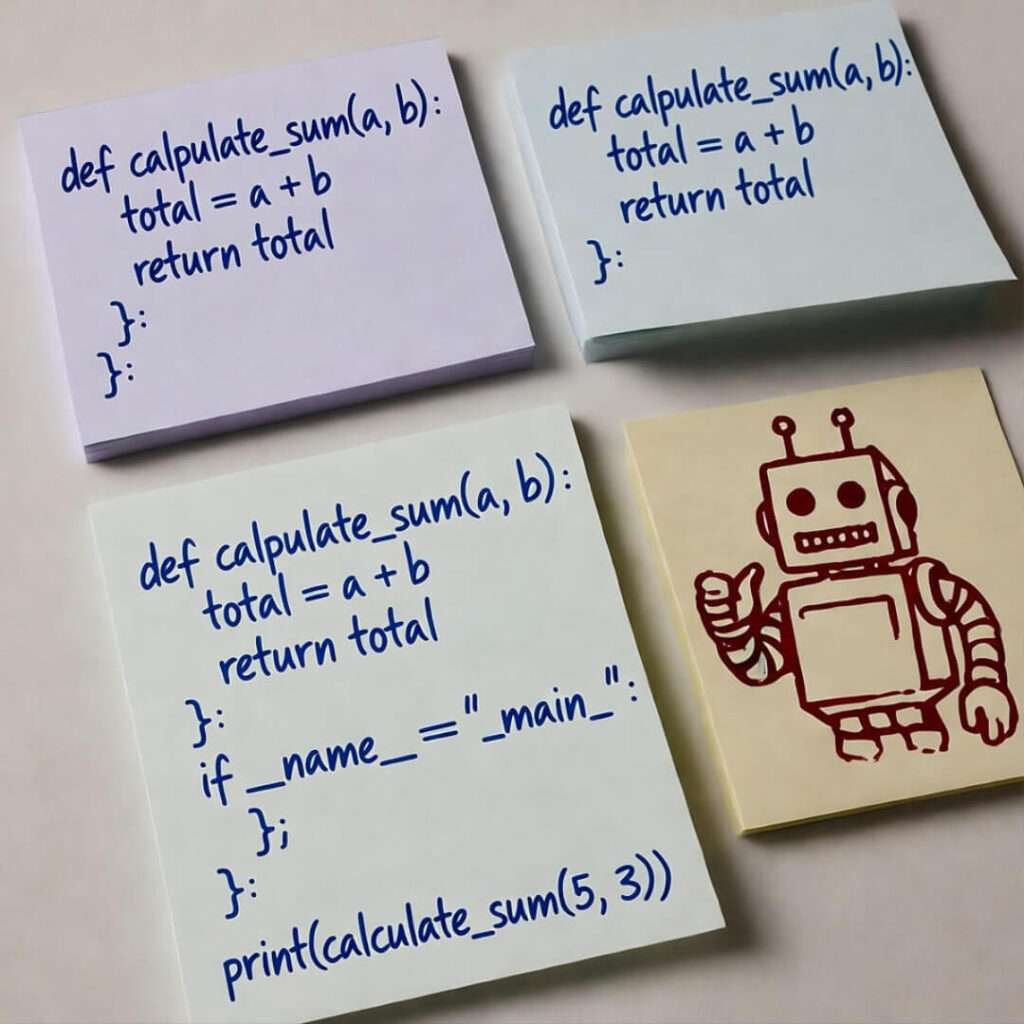 def calpulate_sum(a, b):
total = a + b
return total
}:
}:
def calpulate_sum(a, b):
total = a + b
return total
}:
def calpulate_sum(a, b):
total = a + b
return total
}:
if __name__="_main_":
};
}:
print(calculate_sum(5, 3))